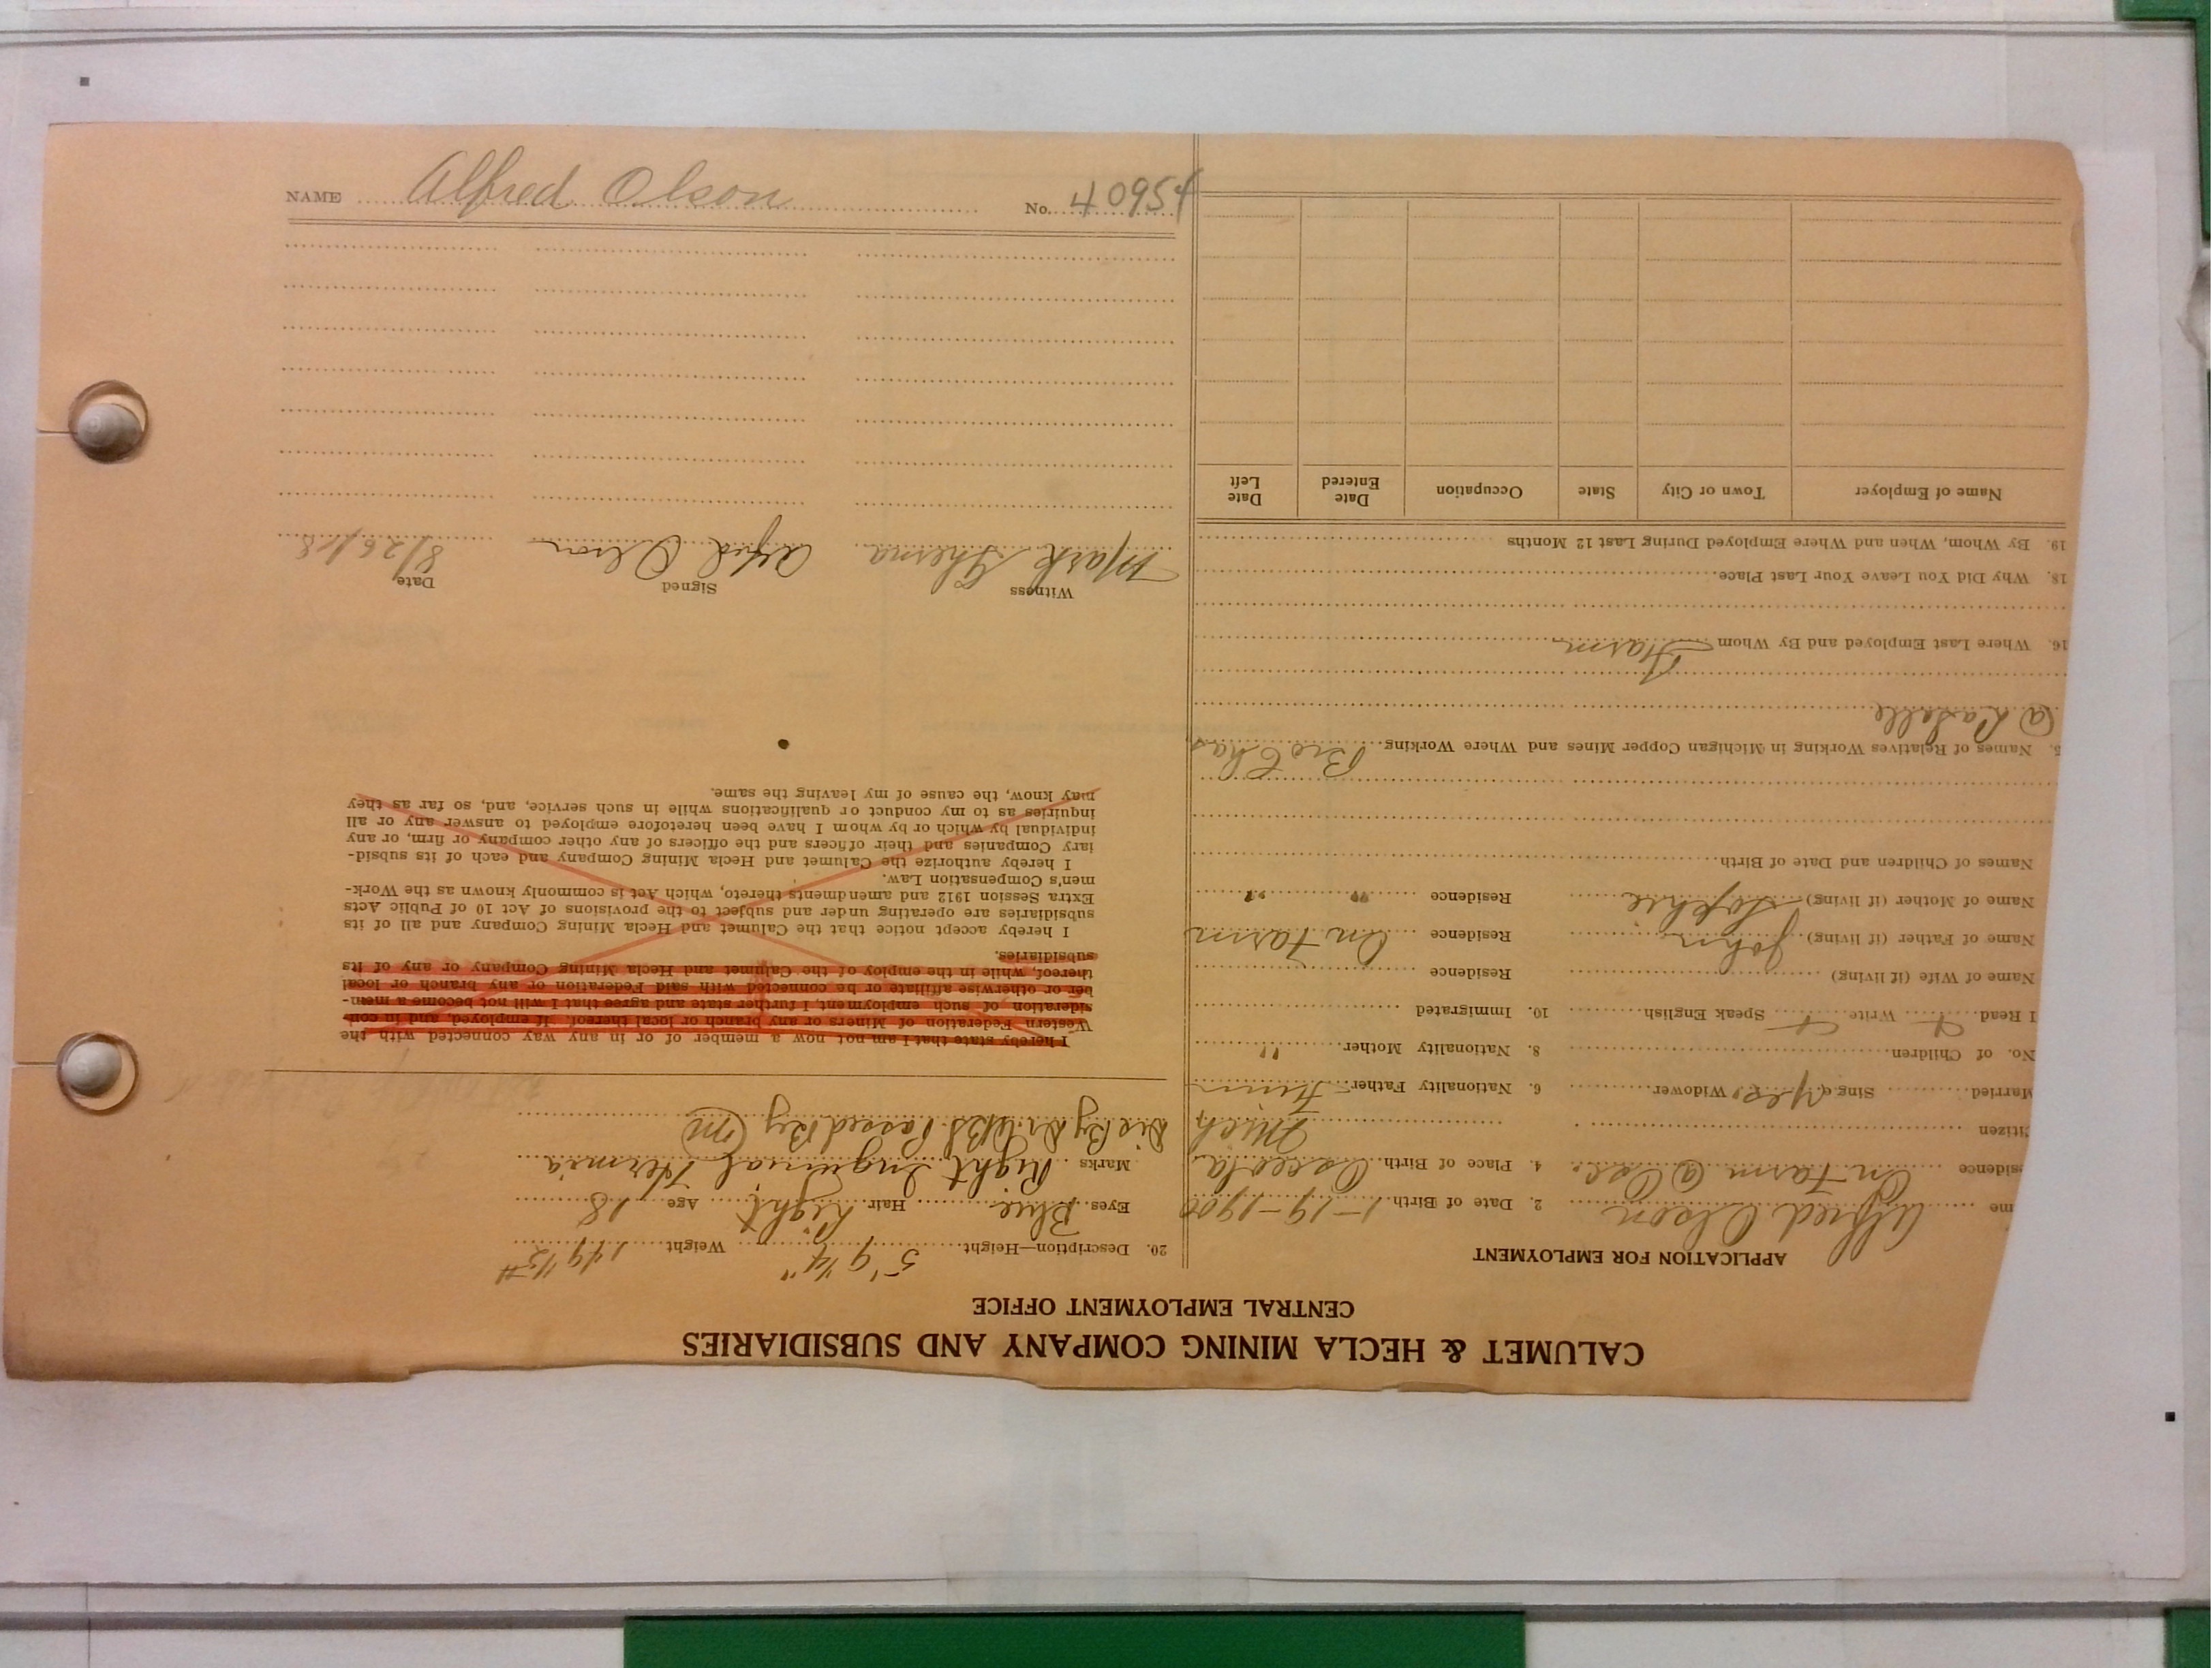 NAME Alfred Olson No. 40954
CALUMET & HECLA MINING COMPANY AND SUBSIDIARIES
CENTRAL EMPLOYMENT OFFICE
APPLICATION FOR EMPLOYMENT
me Alfred Olson 2. Date of Birth 1-19-1900
sidence On Farm @ Osc. 4. Place of Birth Osceola
itizen Mich
Married Single Yes Widower 6. Nationality Father Finn
No. of Children 8. Nationality Mother "
I Read Write Speak English 10. Immigrated
Name of Wife (if living) Residence
Name of Father (if living) John Residence On Farm
Name of Mother (if living) Sophie Residence " "
Names of Children and Date of Birth
5. Names of Relatives Working in Michigan Copper Mines and Where Working Bro Chas
@ LaSalle
16. Where Last Employed and By Whom Farm
18. Why Did You Leave Your Last Place
19. By Whom, When and Where Employed During Last 12 Months
Name of Employer Town or City State Occupation Date Entered Date Left
20. Description—Height 5' 9 1/4" Weight 149 1/2 #
Eyes Blue Hair Light Age 18
Marks Right Inguinal Hernia
Dis By Dr. Passed By M
I hereby state that I am not now a member of or in any way connected with the
Western Federation of Miners or any branch or local thereof. If employed, and in con-
sideration of such employment, I further state and agree that I will not become a mem-
ber or otherwise affiliate or be connected with said Federation or any branch or local
thereof, while in the employ of the Calumet and Hecla Mining Company or any of its
subsidiaries.
I hereby accept notice that the Calumet and Hecla Mining Company and all of its
subsidiaries are operating under and subject to the provisions of Act 10 of Public Acts
Extra Session 1912 and amendments thereto, which Act is commonly known as the Work-
men's Compensation Law.
I hereby authorize the Calumet and Hecla Mining Company and each of its subsid-
iary Companies and their officers and the officers of any other company or firm, or any
individual by which or by whom I have been heretofore employed to answer any or all
inquiries as to my conduct or qualifications while in such service, and, so far as they
may know, the cause of my leaving the same.
Witness Signed Date
Mark Alfred Olson 8/26/18